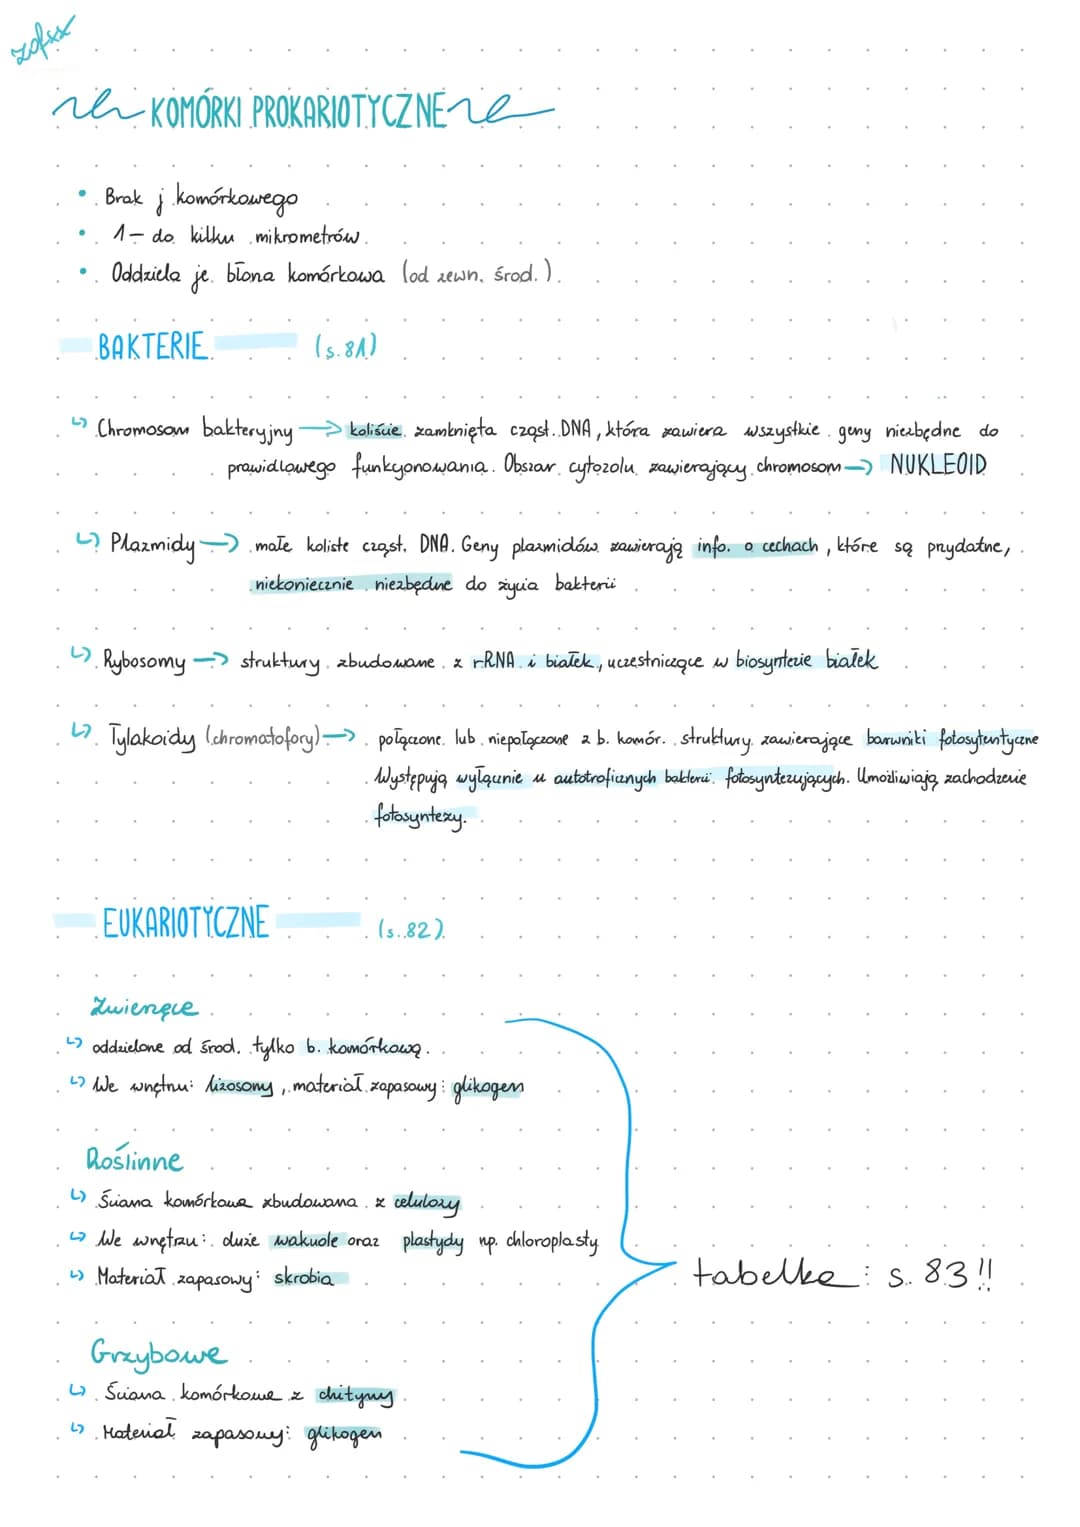 zofsx
KOMÓRKI PROKARIOTYCZNE
• Brak j komórkowego
• 1 - do kilku mikrometrów
• Oddziela je błona komórkowa (od zewn. środ.)
BAKTERIE (s.81)
↳ Chromosom bakteryjny → koliście zamknięta cząst. DNA, która zawiera wszystkie geny niezbędne do
prawidłowego funkcjonowania. Obszar cytozolu zawierający chromosom → NUKLEOID
↳ Plazmidy → małe koliste cząst. DNA. Geny plazmidów zawierają info. o cechach, które są przydatne,
niekoniecznie niezbędne do życia bakterii
↳ Rybosomy → struktury zbudowane z rRNA i białek, uczestniczące w biosyntezie białek
↳ Tylakoidy (chromatofory) → połączone lub niepołączone z b. komór. struktury zawierające barwniki fotosytentyczne
Występują wyłącznie u autotroficznych bakterii fotosyntezujących. Umożliwiają zachodzenie
fotosyntezy.
EUKARIOTYCZNE (s.82)
Zwierzęce
↳ oddzielone od środ. tylko b. komórkową.
↳ We wnętrzu: lizosomy, materiał zapasowy: glikogen
Roślinne
↳ Ściana komórkowa zbudowana z celulozy
↳ We wnętrzu: duże wakuole oraz plastydy np. chloroplasty
↳ Materiał zapasowy: skrobia
tabelka: s. 83!!
Grzybowe
↳ Ściana komórkowa z chityny
↳ Materiał zapasowy: glikogen